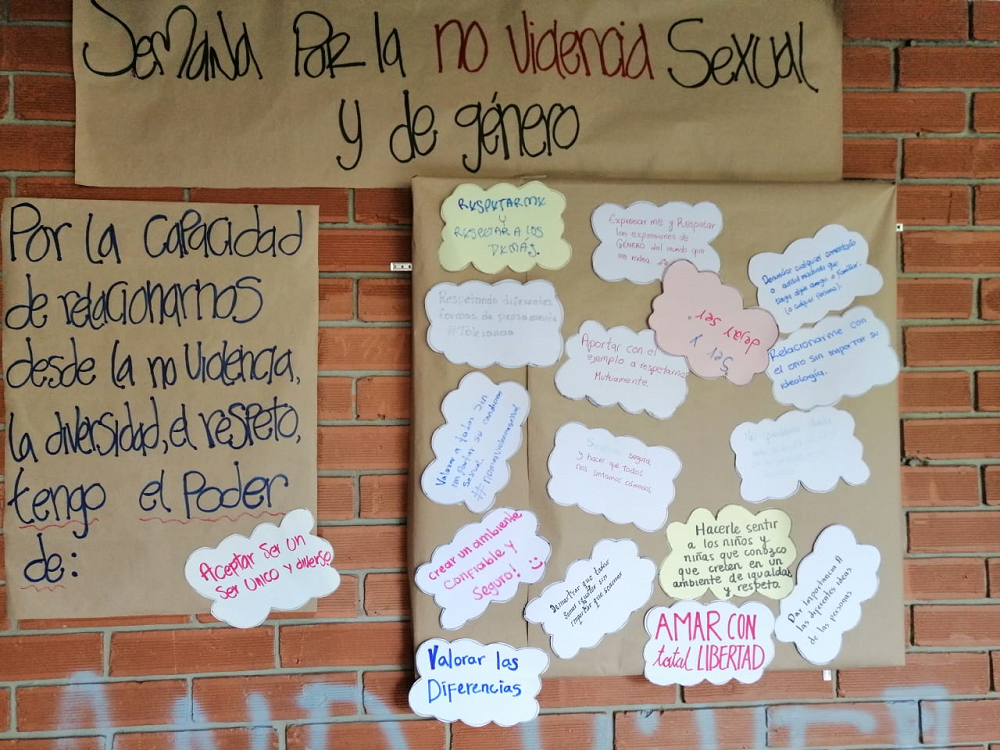 Semana Por la no Violencia Sexual
y de género
Por la capacidad
de relacionarnos
desde la no violencia,
la diversidad, el respeto,
tengo el Poder
de:
Aceptar Ser un
Ser Unico y diverso
RESPETARME
Y
RESPETAR A LOS
DEMÁS.
Expresar me y Respetar
las expresiones de
GÉNERO del mundo que
me rodea
Desmentir cualquier comentario
o actitud machista que
haga algun amigo o familiar.
(o cualquier persona).
Respetando diferentes
formas de pensamiento
#Tolerancia
Ser y
dejar ser
Aportar con el
ejemplo a respetarnos
Mutuamente.
Relacionarme con
el otro sin importar su
ideología.
Valorar a todos sin
importar su condicion
sexual.
segura
y hacer que todos
nos sintamos cómodos
crear un ambiente
confiable y
seguro!
Demostrar que todos
somos iguales sin
importar que seamos
Hacerle sentir
a los niños y
niñas que conozco
que crecen en un
ambiente de igualdad
y respeto
Dar Importancia A
las diferentes ideas
de las personas
AMAR CON
total LIBERTAD
Valorar las
Diferencias